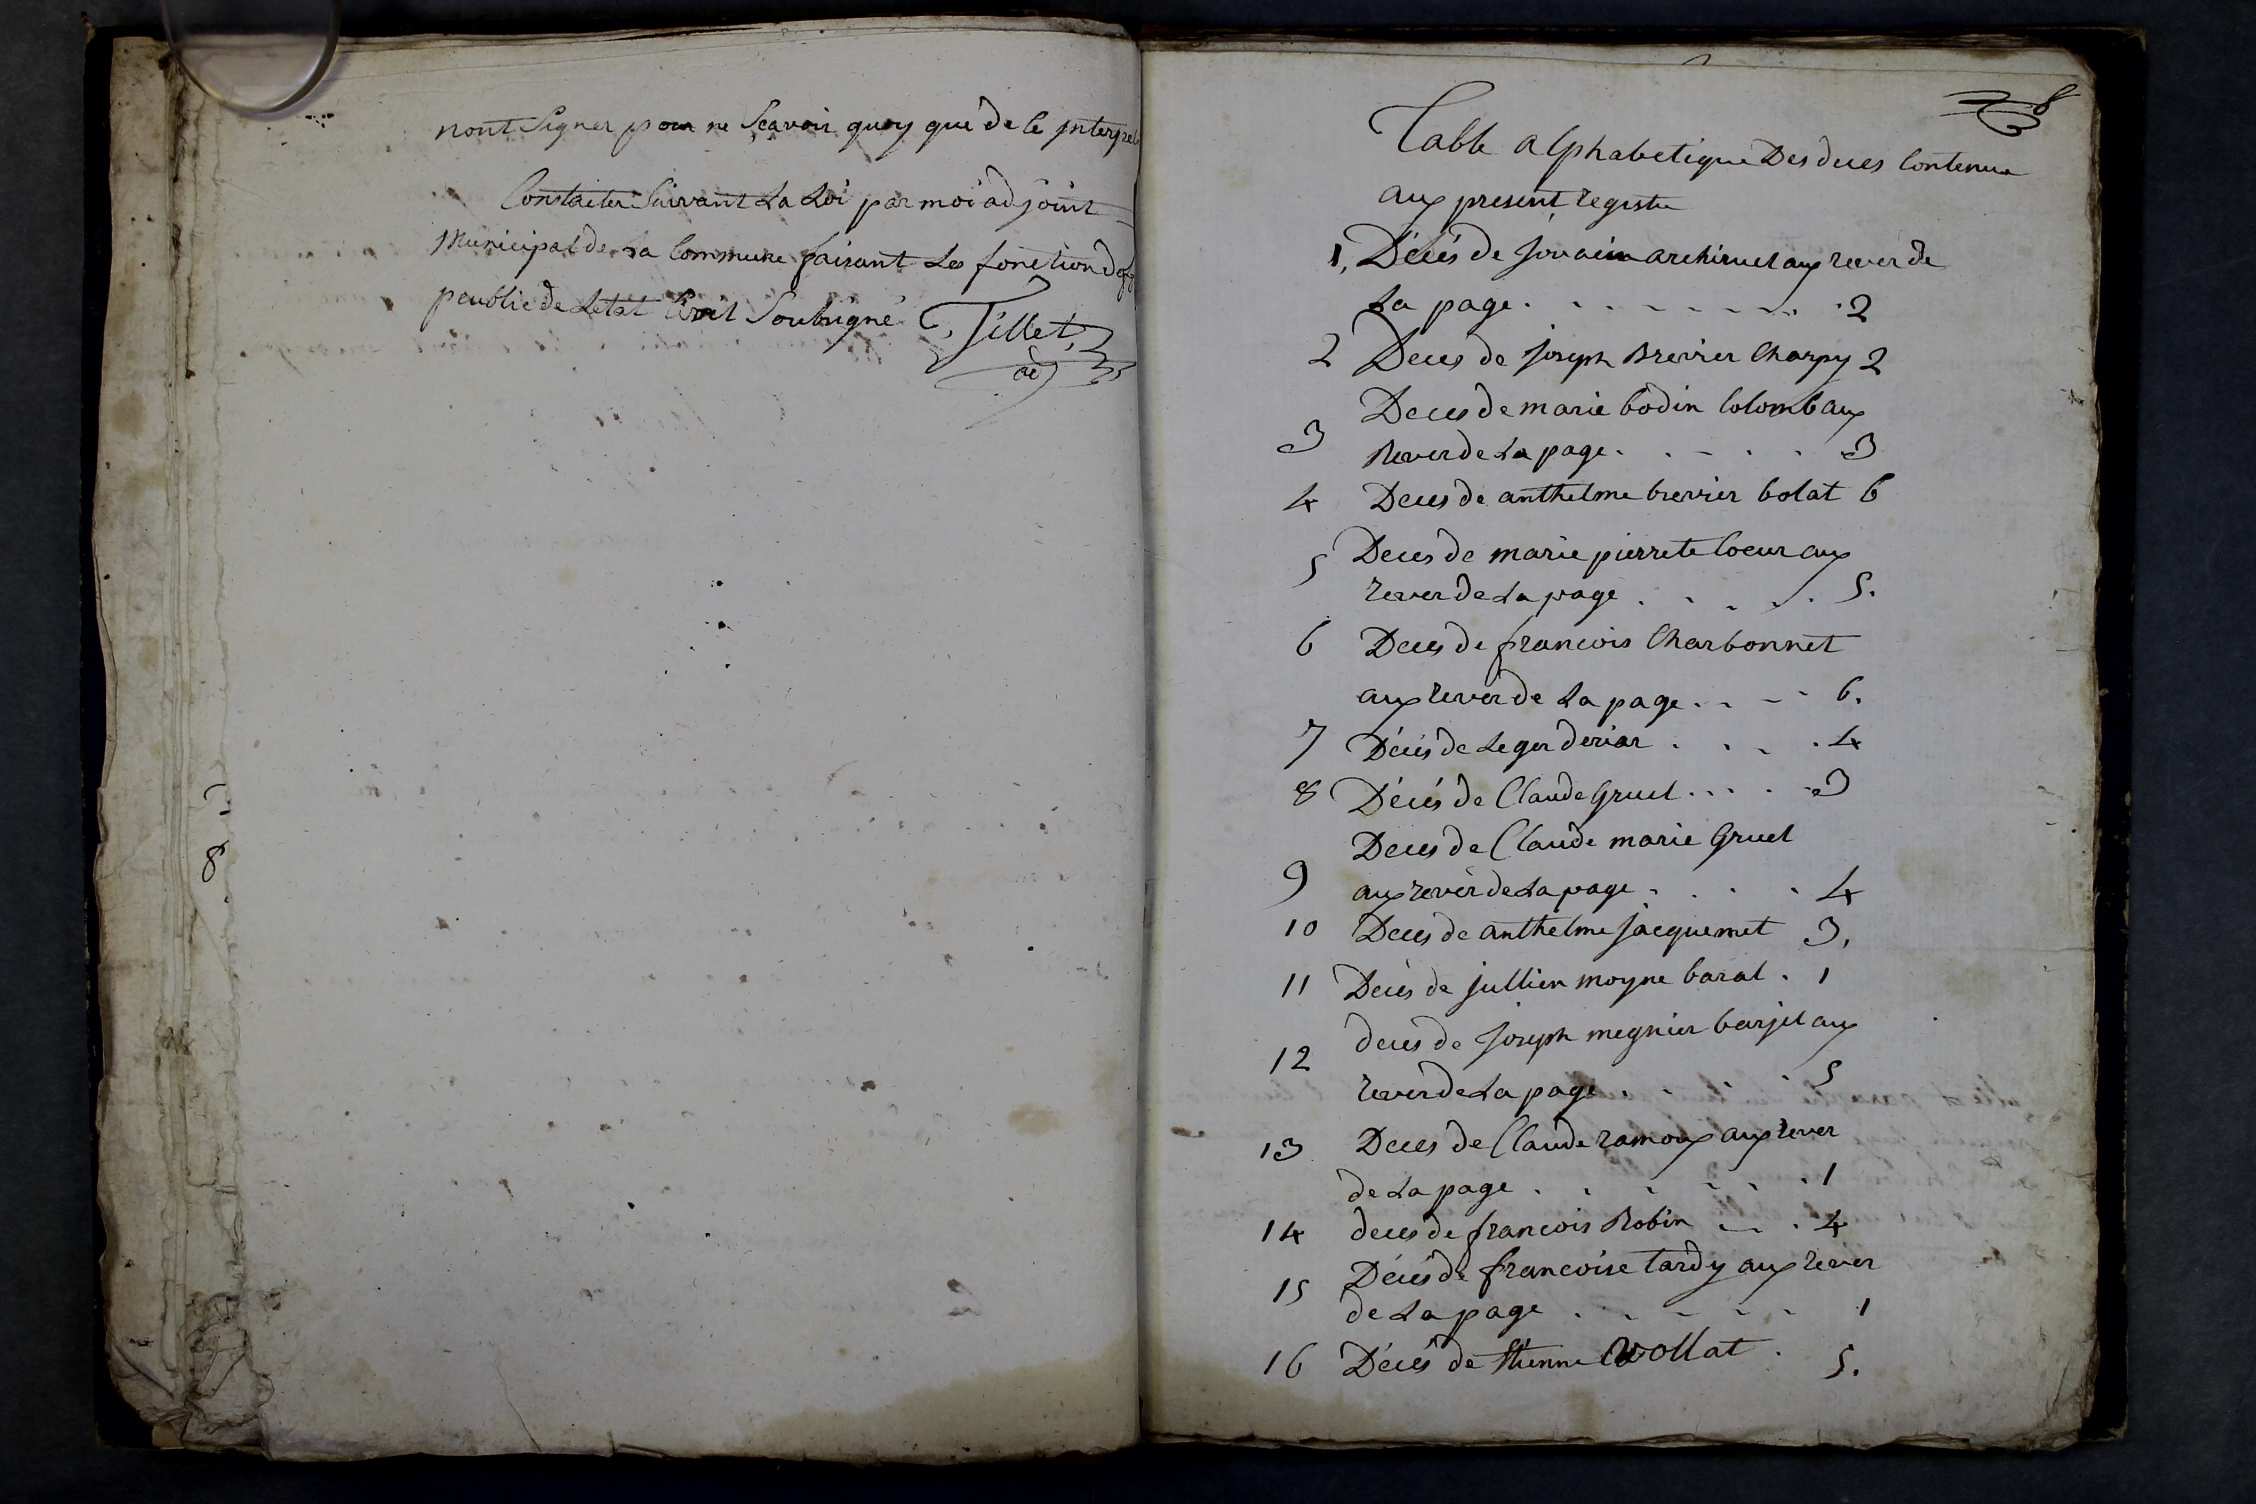 nont Signer pour ne Scavoir quoy que de ce jnterpele
Constater Suivant La Loi par moi adjoint
Municipal de La Commune faisant Les fonction
peublic de Letat Civil Soubsigné Tillet
adj
8
8
Table alphabetique Des deces Contenue
aux present registre
1, Décés de archiruel aux rever de
La page . . . . . . . . 2
2 Deces de joseph Brevier Charpy 2
Deces de marie bodin Colomb aux
3 Rever de La page . . . . . 3
4 Deces de anthelme brevier bolat 6
5 Deces de marie pierrete Coeur aux
rever de La page . . . . . 5.
6 Deces de francois Charbonnet
aux rever de La page . . . . 6.
7 Décés de Leger deriar . . . . 4
8 Décés de Claude Gruel . . . . 3
Deces de Claude marie Gruel
9 aux rever de La page . . . . 4
10 Deces de anthelme jacquemet 3,
11 Decés de jullien moyne barat . 1
deces de joseph megnier barjet aux
12 rever de La page . . . . 5
13 Deces de Claude ramoux aux rever
de La page . . . . . . 1
14 deces de francois Robin . . . 4
15 Décés de francoise tardy aux rever
de La page . . . . . 1
16 Décés de Etienne Wollat . 5.